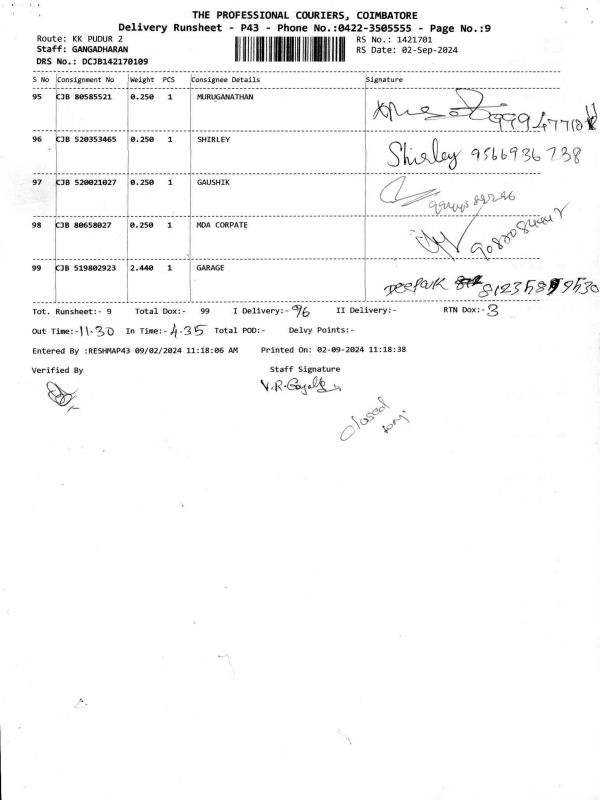 THE PROFESSIONAL COURIERS, COIMBATORE
Delivery Runsheet - P43 - Phone No.:0422-3505555 - Page No.:9
Route: KK PUDUR 2 RS No.: 1421701
Staff: GANGADHARAN RS Date: 02-Sep-2024
DRS No.: DCJB142170109
S No Consignment No Weight PCS Consignee Details Signature
95 CJB 80585521 0.250 1 MURUGANATHAN
96 CJB 520353465 0.250 1 SHIRLEY Shirley 9566936738
97 CJB 520021027 0.250 1 GAUSHIK
98 CJB 80658027 0.250 1 MDA CORPATE
99 CJB 519802923 2.440 1 GARAGE Deepak
Tot. Runsheet:- 9 Total Dox:- 99 I Delivery:- 96 II Delivery:- RTN Dox:- 3
Out Time:- 11.30 In Time:- 4.35 Total POD:- Delvy Points:-
Entered By :RESHMAP43 09/02/2024 11:18:06 AM Printed On: 02-09-2024 11:18:38
Verified By Staff Signature
closed